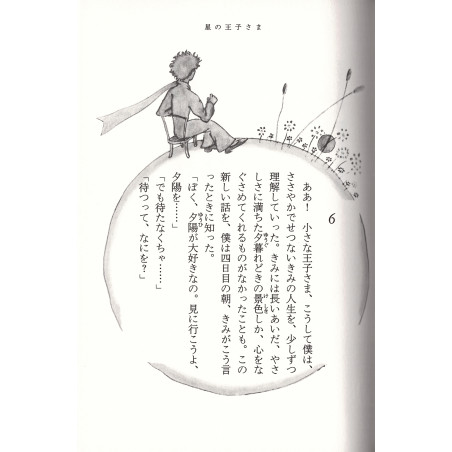 星の王子さま
6
ああ! 小さな王子さま、こうして僕は、
ささやかでせつないきみの人生を、少しずつ
理解していった。きみには長いあいだ、やさ
しさに満ちた夕暮れどきの景色しか、心をな
ぐさめてくれるものがなかったことも。この
新しい話を、僕は四日目の朝、きみがこう言
ったときに知った。
「ぼく、夕陽が大好きなの。見に行こうよ、
夕陽を……」
「でも待たなくちゃ……」
「待つって、なにを?」